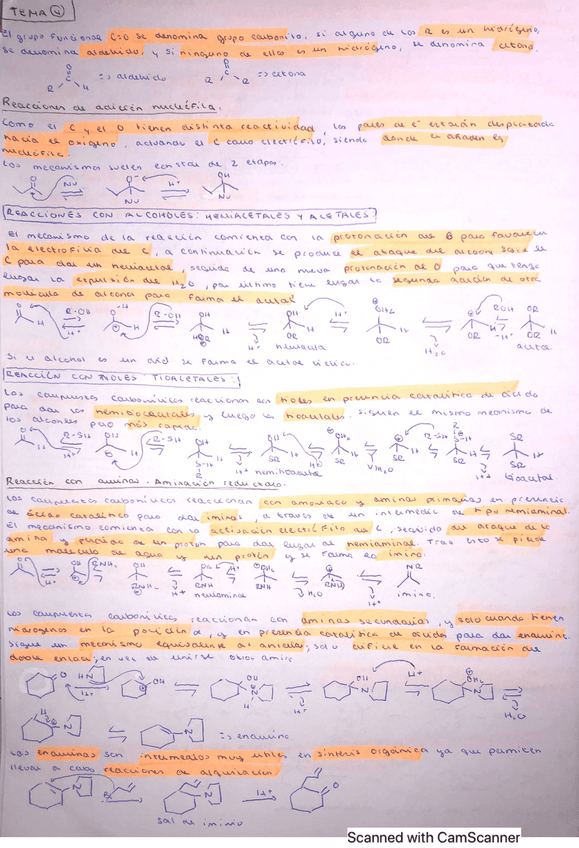 TEMA 4
El grupo funcional C=O se denomina grupo carbonilo, si alguno de los R es un hidrógeno,
se denomina aldehído, y si ninguno de ellos es un hidrógeno, se denomina cetona.
=> aldehido => cetona
Reacciones de adición nucleófila.
Como el C y el O tienen distinta reactividad, los pares de e⁻ estarán desplazados
hacia el oxígeno, actuando el C como electrófilo, siendo donde se añaden los
nucleófilos.
Los mecanismos suelen constar de 2 etapas.
REACCIONES CON ALCOHOLES: HEMIACETALES Y ACETALES
El mecanismo de la reacción comienza con la protonación del para favorecer
la electrofilia del C, a continuación se produce el ataque del alcohol sobre el
C para dar un hemiacetal, seguido de una nueva protonación de O para que tenga
lugar la expulsión del H₂O, por último tiene lugar la segunda adición de otra
molécula de alcohol para formar el acetal
hemiacetal acetal
Si el alcohol es un diol se forma el acetal cíclico.
REACCIÓN CON TIOLES: TIOACETALES:
Los compuestos carbonílicos reaccionan con tioles en presencia catalítica de ácido
para dar los hemitioacetales y luego los tioacetales. Siguen el mismo mecanismo de
los alcoholes pero más rápido.
hemitioacetal tioacetal
Reacción con aminas. Aminación reductora.
Los compuestos carbonílicos reaccionan con amoniaco y aminas primarias en presencia
de ácido catalítico para dar iminas, a través de un intermedio de tipo hemiaminal.
El mecanismo comienza con la activación electrófila del C, seguido del ataque de la
amina y pérdida de un protón para dar lugar al hemiaminal. Tras esto se pierde
una molécula de agua y un protón y se forma la imina.
hemiamina imina.
Los compuestos carbonílicos reaccionan con aminas secundarias, y solo cuando tienen
hidrógenos en la posición α, y en presencia catalítica de ácidos para dar enaminas.
Sigue un mecanismo equivalente al anterior, solo difiere en la formación del
doble enlace, en vez de unirse otra amina
=> enamina
Las enaminas son intermedios muy útiles en síntesis orgánica ya que permiten
llevar a cabo reacciones de alquilación
sal de iminio
Scanned with CamScanner